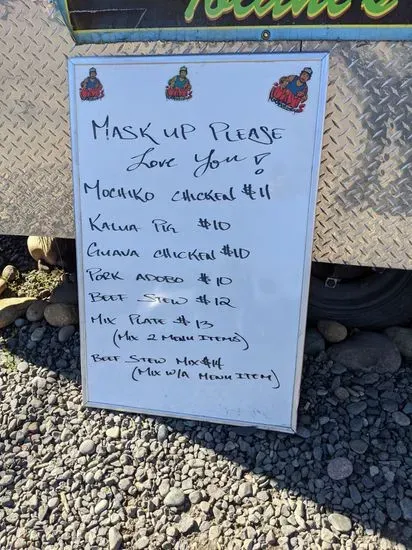 MASK UP PLEASE
Love You!
MOCHIKO CHICKEN $11
KALUA PIG $10
GUAVA CHICKEN $10
PORK ADOBO $10
BEEF STEW $12
MIX PLATE $13
(MIX 2 MENU ITEMS)
BEEF STEW MIX $14
(MIX W/A MENU ITEM)